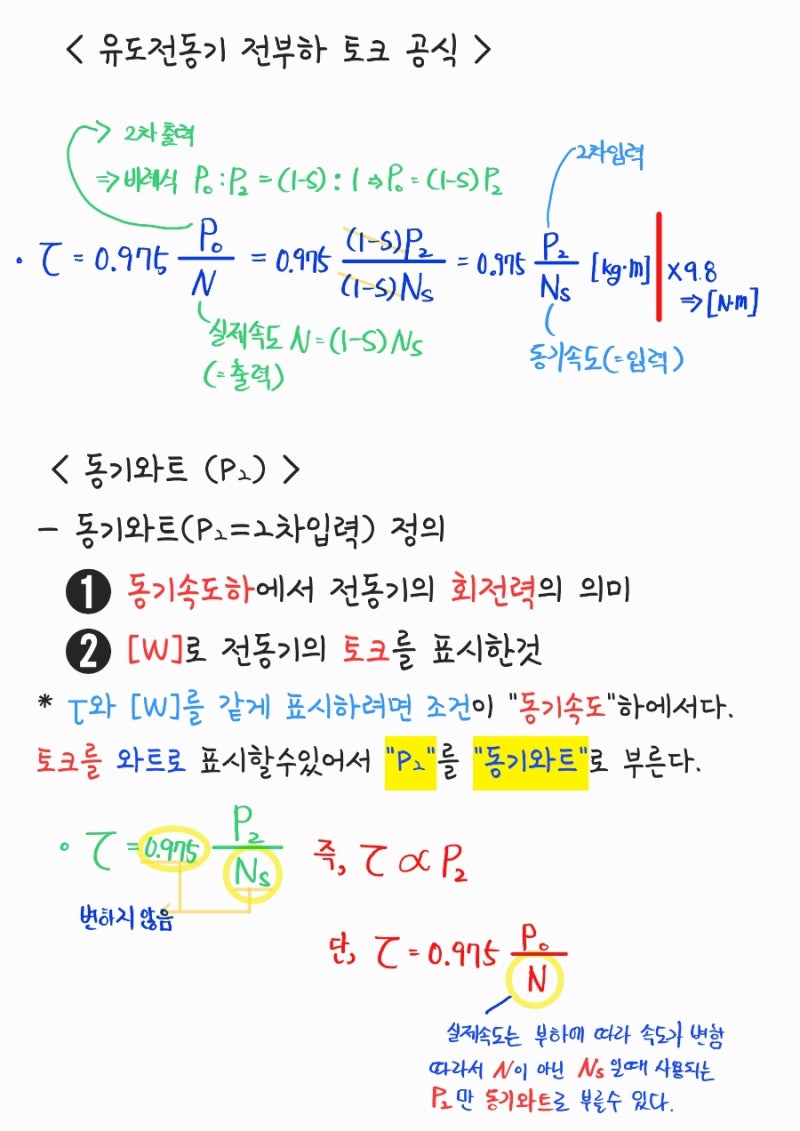 < 유도전동기 전부하 토크 공식 >
2차 출력
⇒ 비례식 P₀ : P₂ = (1-S) : 1 ⇒ P₀ = (1-S) P₂
2차입력
· τ = 0.975 P₀/N = 0.975 (1-S)P₂/(1-S)Ns = 0.975 P₂/Ns [kg·m] | ×9.8
⇒ [N·m]
실제속도 N = (1-S) Ns
(=출력)
동기속도(=입력)
< 동기와트 (P₂) >
- 동기와트(P₂=2차입력) 정의
❶ 동기속도하에서 전동기의 회전력의 의미
❷ [W]로 전동기의 토크를 표시한것
* τ와 [W]를 같게 표시하려면 조건이 "동기속도"하에서다.
토크를 와트로 표시할수있어서 "P₂"를 "동기와트"로 부른다.
∘ τ = 0.975 P₂/Ns 즉, τ ∝ P₂
변하지 않음
단, τ = 0.975 P₀/N
실제속도는 부하에 따라 속도가 변함
따라서 N이 아닌 Ns 일때 사용되는
P₂만 동기와트로 부를수 있다.